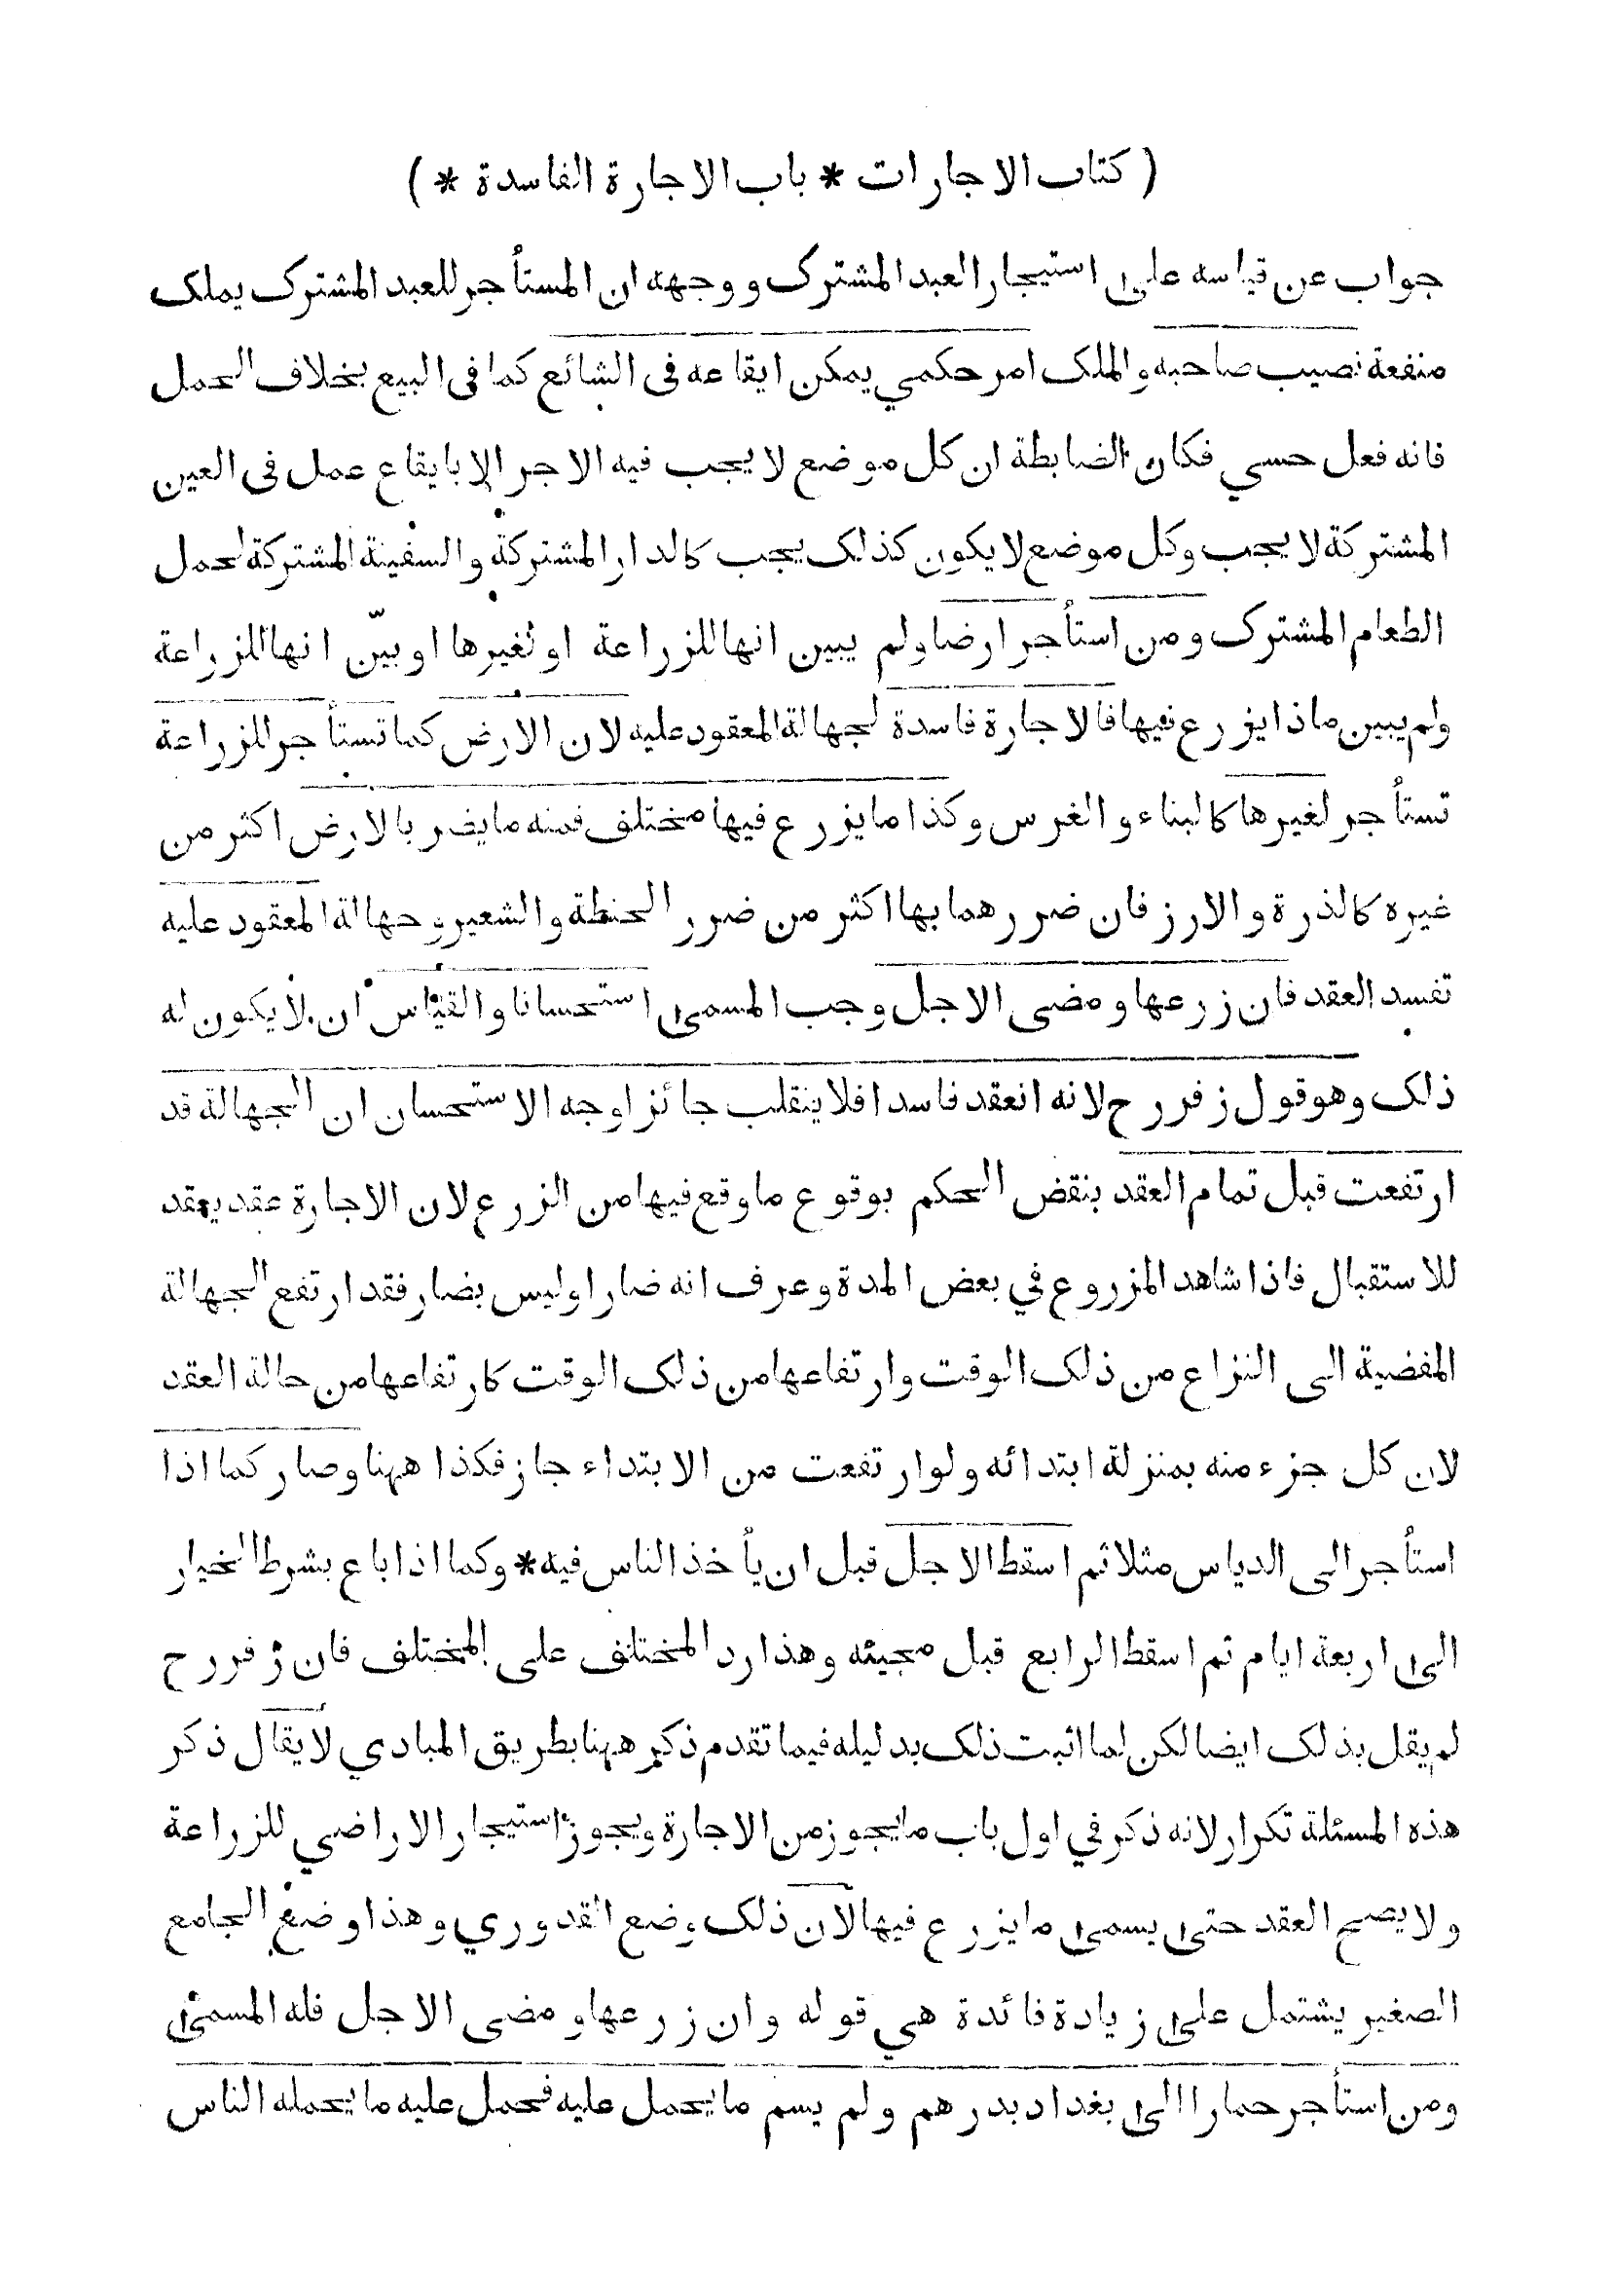 ( كتاب الاجارات * باب الاجارة الفاسدة * )
جواب عن قياسه على استيجار العبد المشترك ووجهه ان المستأجر للعبد المشترك يملك
منفعة نصيب صاحبه والملك امر حكمي يمكن ايقاعه فى الشائع كما فى البيع بخلاف الحمل
فانه فعل حسي فكان الضابطة ان كل موضع لا يجب فيه الاجر الا بايقاع عمل فى العين
المشتركة لا يجب وكل موضع لا يكون كذلك يجب كالدار المشتركة والسفينة المشتركة لحمل
الطعام المشترك ومن استأجر ارضا ولم يبين انها للزراعة او لغيرها او بيّن انها للزراعة
ولم يبين ماذا يزرع فيها فالاجارة فاسدة لجهالة المعقود عليه لان الارض كما تستأجر للزراعة
تستأجر لغيرها كالبناء والغرس وكذا ما يزرع فيها مختلف فمنه ما يضر بالارض اكثر من
غيره كالذرة والارز فان ضررهما بها اكثر من ضرر الحنطة والشعير وجهالة المعقود عليه
تفسد العقد فان زرعها ومضى الاجل وجب المسمى استحسانا والقياس ان لا يكون له
ذلك وهو قول زفر رح لانه انعقد فاسدا فلا ينقلب جائزا وجه الاستحسان ان الجهالة قد
ارتفعت قبل تمام العقد بنقض الحكم بوقوع ما وقع فيها من الزرع لان الاجارة عقد يعقد
للاستقبال فاذا شاهد المزروع في بعض المدة وعرف انه ضار او ليس بضار فقد ارتفع الجهالة
المفضية الى النزاع من ذلك الوقت وارتفاعها من ذلك الوقت كارتفاعها من حالة العقد
لان كل جزء منه بمنزلة ابتدائه ولو ارتفعت من الابتداء جاز فكذا ههنا وصار كما اذا
استأجر الى الدياس مثلا ثم اسقط الاجل قبل ان يأخذ الناس فيه * وكما اذا باع بشرط الخيار
الى اربعة ايام ثم اسقط الرابع قبل مجيئه وهذا رد المختلف على المختلف فان زفر رح
لم يقل بذلك ايضا لكن لما اثبت ذلك بدليله فيما تقدم ذكره ههنا بطريق المبادي لا يقال ذكر
هذه المسئلة تكرار لانه ذكر في اول باب ما يجوز من الاجارة ويجوز استيجار الاراضي للزراعة
ولا يصح العقد حتى يسمى ما يزرع فيها لان ذلك وضع القدوري وهذا وضع الجامع
الصغير يشتمل على زيادة فائدة هي قوله وان زرعها ومضى الاجل فله المسمى
ومن استأجر حمارا الى بغداد بدرهم ولم يسم ما يحمل عليه فحمل عليه ما يحمله الناس